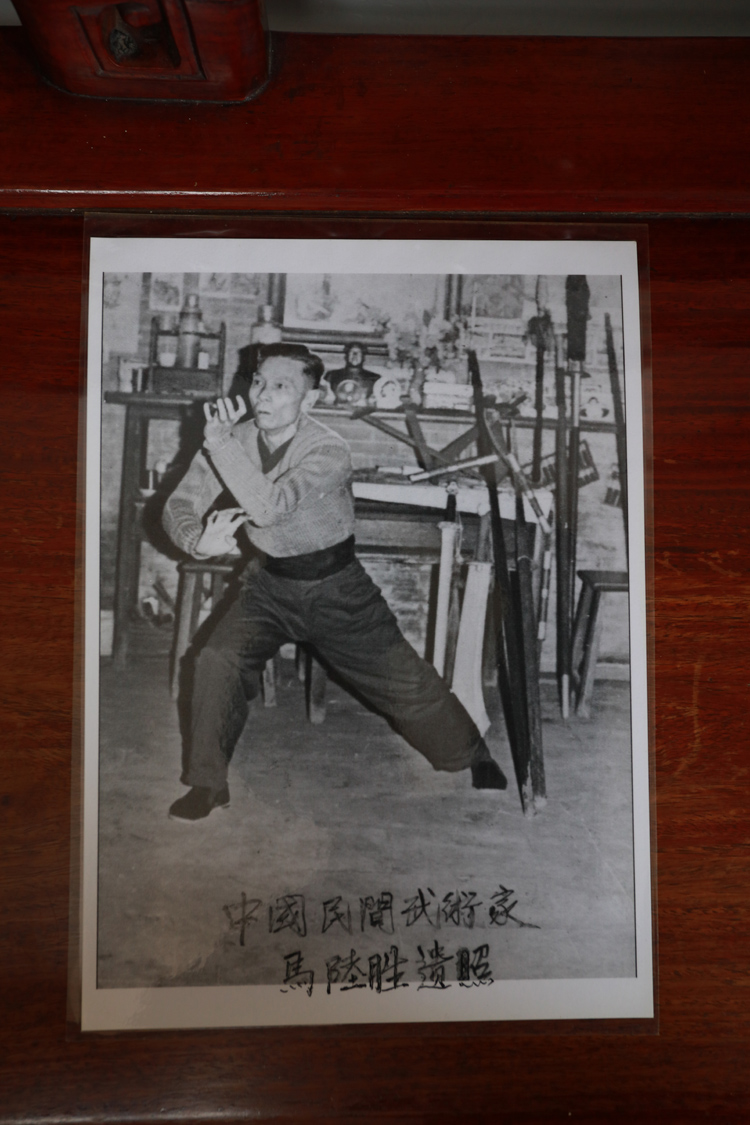 中國民間武術家
馬陸胜遺照